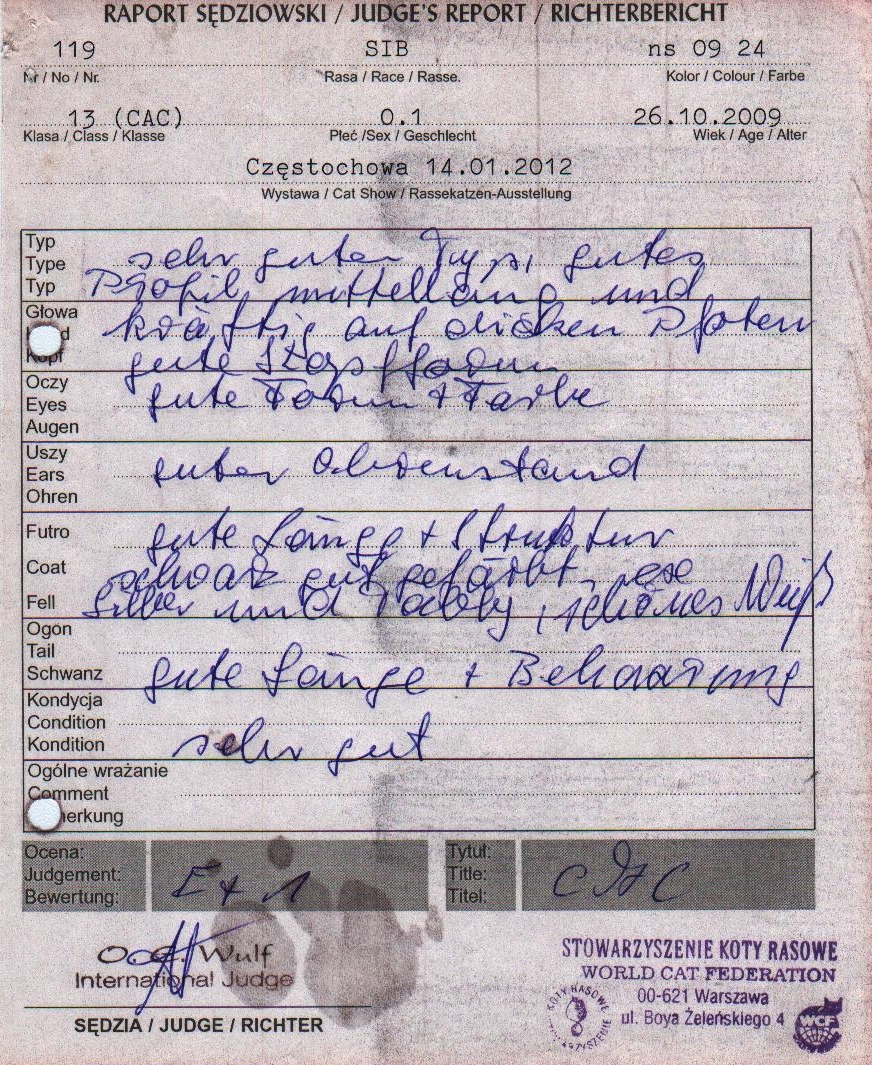 RAPORT SĘDZIOWSKI / JUDGE'S REPORT / RICHTERBERICHT
119 SIB ns 09 24
Nr / No / Nr. Rasa / Race / Rasse. Kolor / Colour / Farbe
13 (CAC) 0.1 26.10.2009
Klasa / Class / Klasse Płeć /Sex / Geschlecht Wiek / Age / Alter
Częstochowa 14.01.2012
Wystawa / Cat Show / Rassekatzen-Ausstellung
Typ
Type sehr guter Typ, gutes
Typ Profil, mittellang und
Głowa kräftig auf dicken Pfoten
Kopf gute Kopfform
Oczy gute Form + Farbe
Eyes
Augen
Uszy
Ears guter Ohrenstand
Ohren
Futro gute Länge + Struktur
Coat schwarz gut gefärbt,
Fell Silber und Tabby, schönes Weiß
Ogon
Tail
Schwanz gute Länge + Behaarung
Kondycja
Condition
Kondition sehr gut
Ogólne wrażanie
Comment
merkung
Ocena: Tytuł:
Judgement: Ex 1 Title: CAC
Bewertung: Titel:
Wulf
International Judge
SĘDZIA / JUDGE / RICHTER
STOWARZYSZENIE KOTY RASOWE
WORLD CAT FEDERATION
00-621 Warszawa
ul. Boya Żeleńskiego 4
KOTY RASOWE
WCF